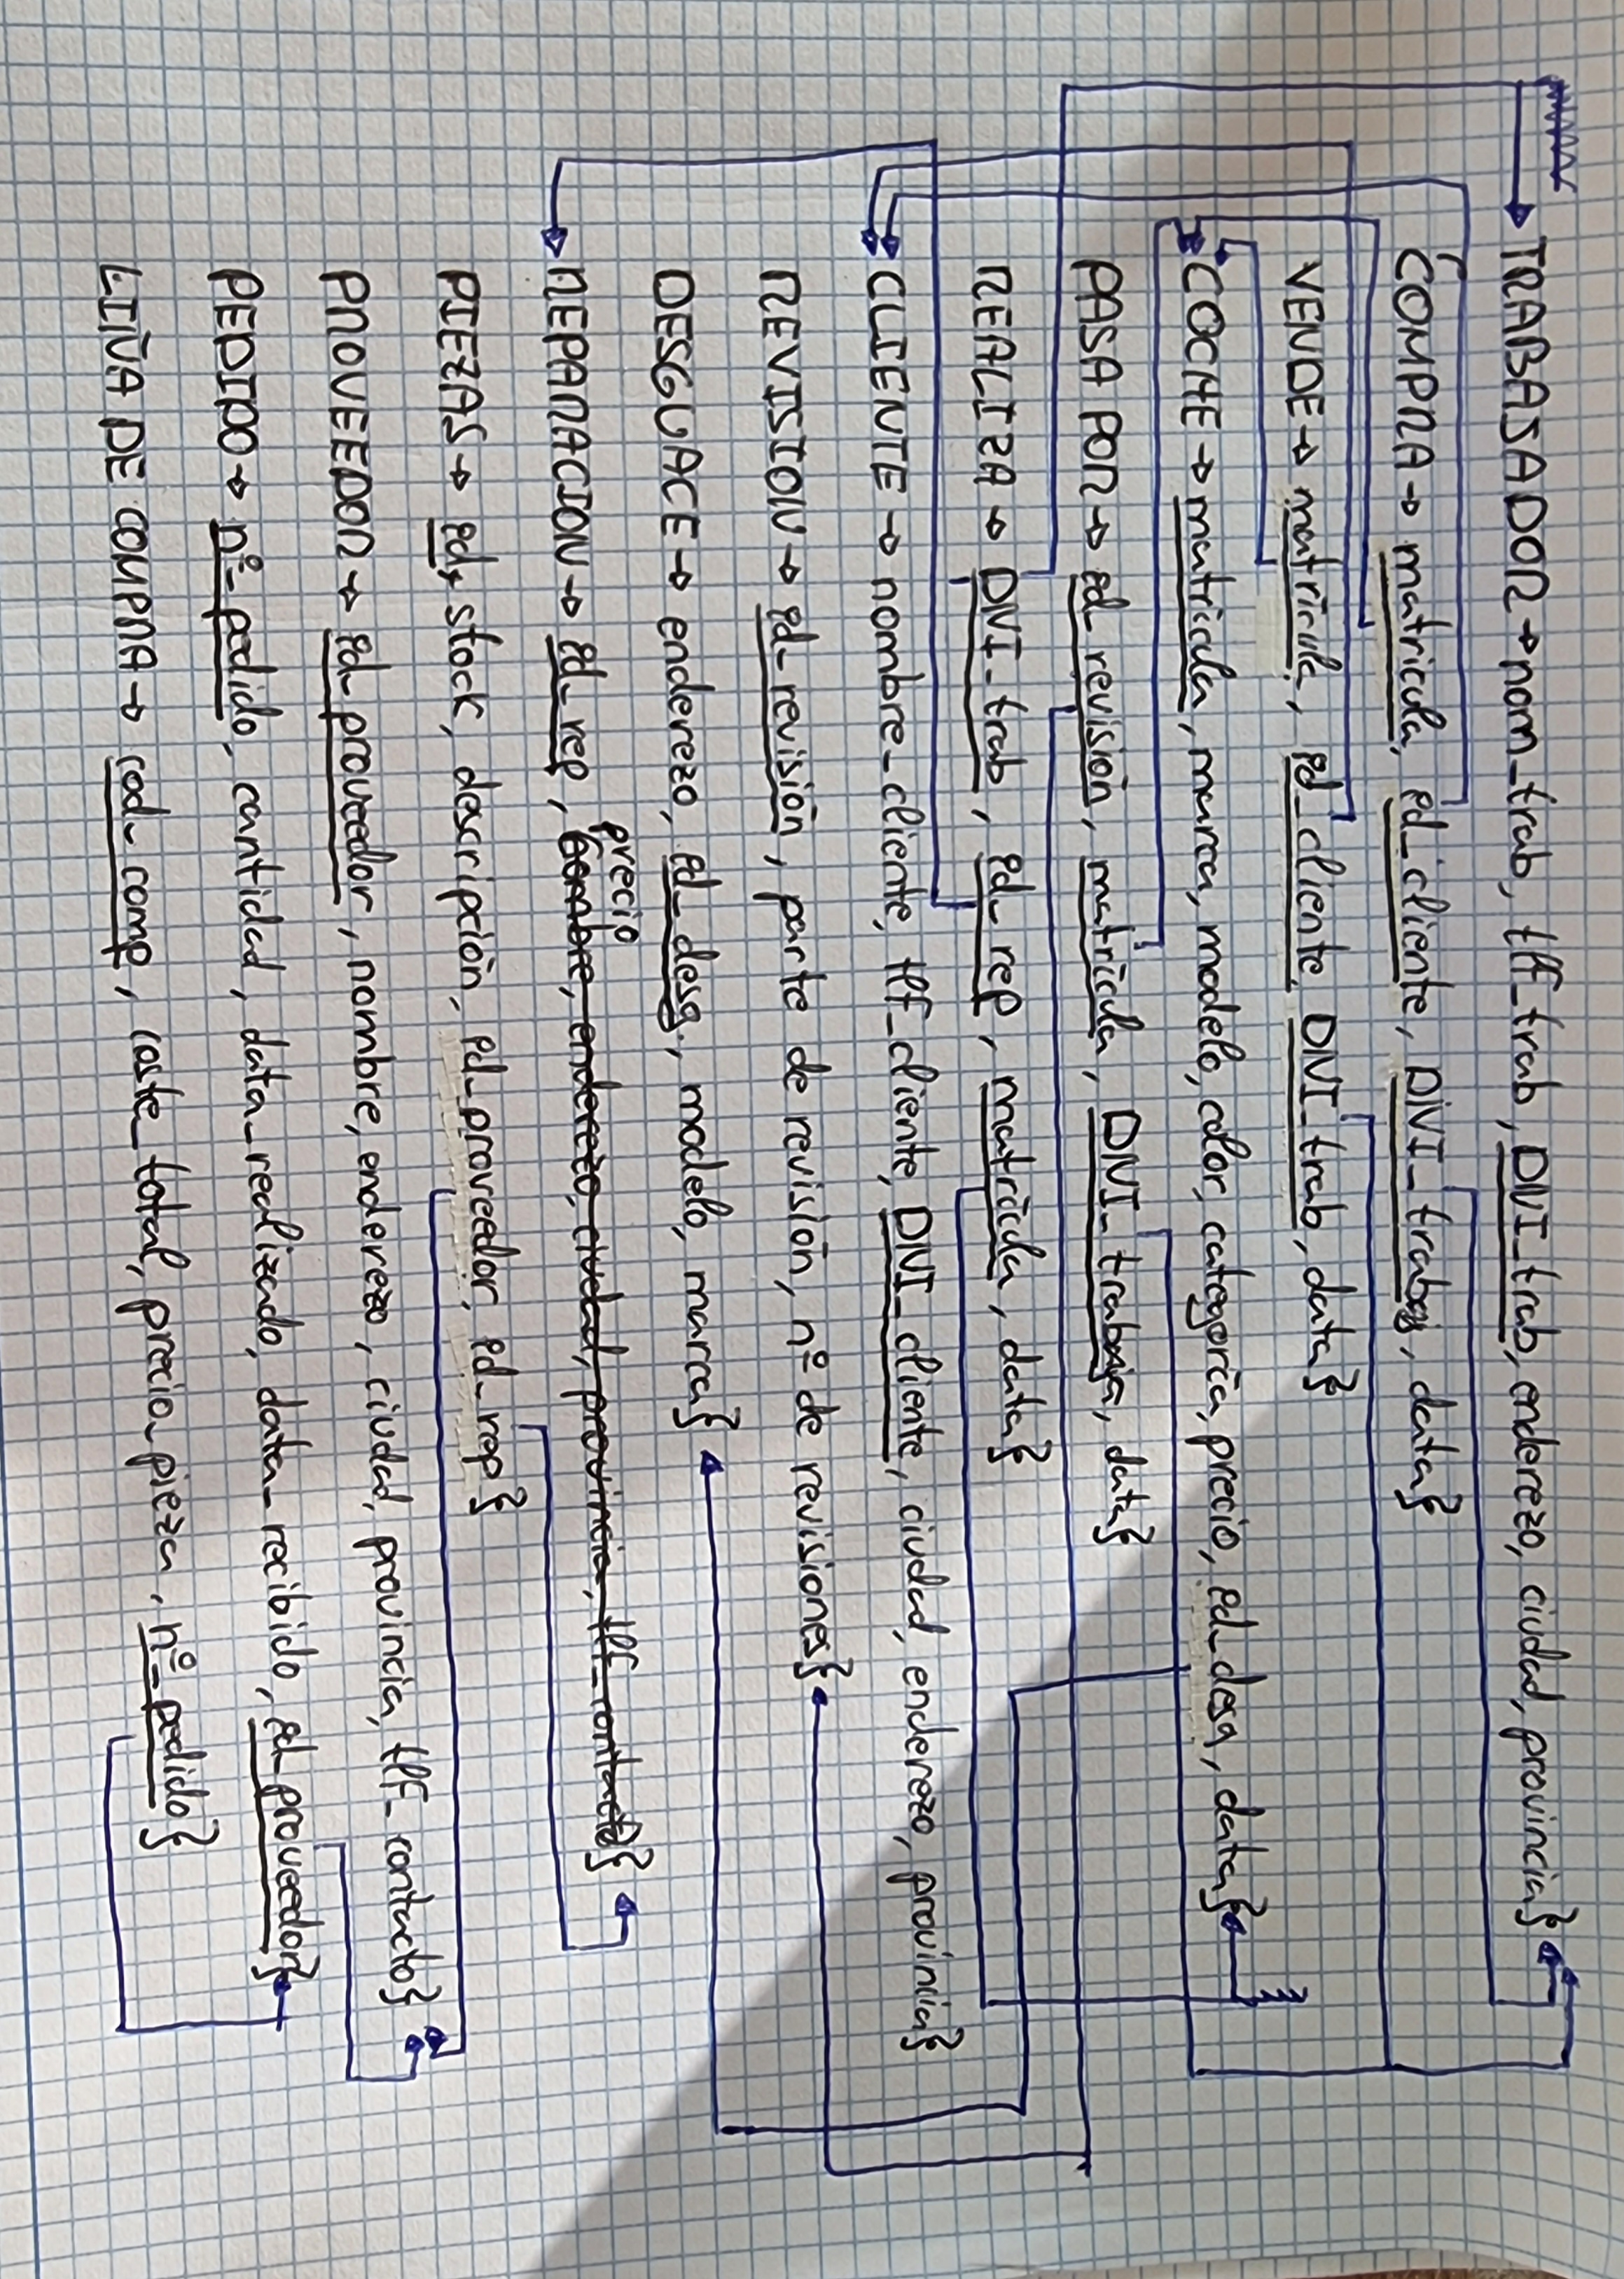 TRABAJADOR → nom_trab, tlf_trab, DNI_trab, enderezo, ciudad, provincia}
COMPRA → matricula, id_cliente, DNI_trabaj, data}
VENDE → matrícula, id_cliente, DNI_trab, data}
COCHE → matricula, marca, modelo, color, categoría, precio, id_desg, data}
PASA POR → id_revision, matrícula, DNI_trabaja, data}
REALIZA → DNI_trab, id_rep, matrícula, data}
CLIENTE → nombre_cliente, tlf_cliente, DNI_cliente, ciudad, enderezo, provincia}
REVISION → id_revisión, parte de revisión, nº de revisiones}
DESGUACE → enderezo, id_desg, modelo, marca}
precio
REPARACION → id_rep, nombre, enderezo, ciudad, provincia, tlf_contacto}
PIEZAS → id, stock, descripción, id_proveedor, id_rep}
PROVEEDOR → id_proveedor, nombre, enderezo, ciudad, provincia, tlf_contacto}
PEDIDO → nº_pedido, cantidad, data_realizado, data_recibido, id_proveedor}
LIÑA DE COMPRA → cod_comp, coste_total, precio_pieza, nº_pedido}